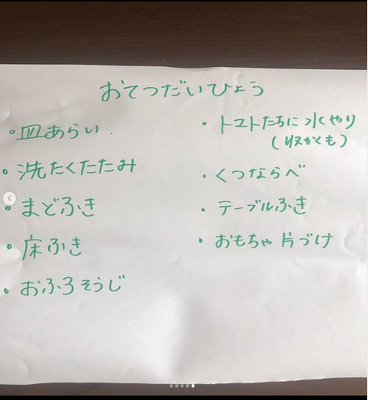 おてつだいひょう
・皿あらい
・洗たくたたみ
・まどふき
・床ふき
・おふろそうじ
・トマトたちに水やり
(収かくも)
・くつならべ
・テーブルふき
・おもちゃ片づけ